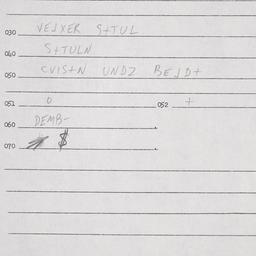 030 VEJXER S+TUL
040 S+TULN
050 CVIS+N UNDZ BEJD+
051 0 052 +
060 DEMB-
070 $